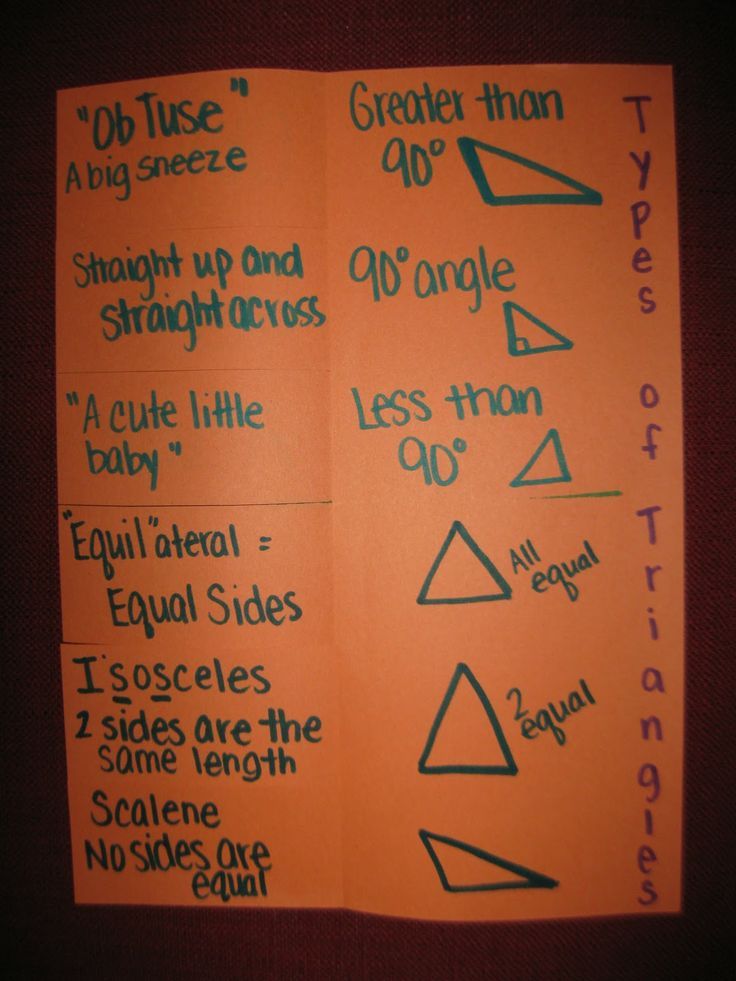 "Ob Tuse"
A big sneeze
Greater than
90°
Straight up and
straight across
90° angle
"A cute little
baby"
Less than
90°
"Equil"ateral =
Equal Sides
All
equal
Isosceles
2 sides are the
same length
2
equal
Scalene
No sides are
equal
Types of Triangles